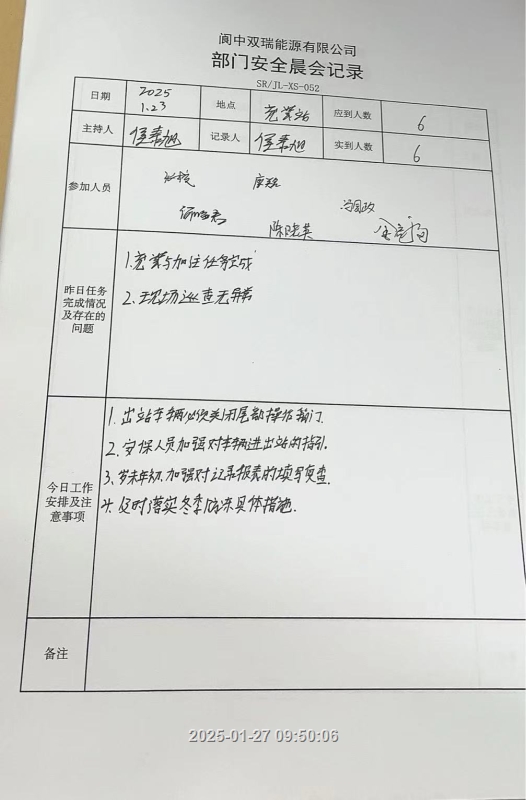 阆中双瑞能源有限公司
部门安全晨会记录
SR/JL-XS-052
日期 2025 1.23 地点 充装站 应到人数 6
主持人 记录人 实到人数 6
参加人员
陈晓英
昨日任务完成情况及存在的问题
1.充装与加注任务完成
2.现场巡查无异常
今日工作安排及注意事项
1.出站车辆必须关闭尾部操作箱门.
2.安保人员加强对车辆进出站的指引.
3.岁末年初,加强对记录报表的填写复查.
4.及时落实冬季防冻具体措施.
备注
2025-01-27 09:50:06